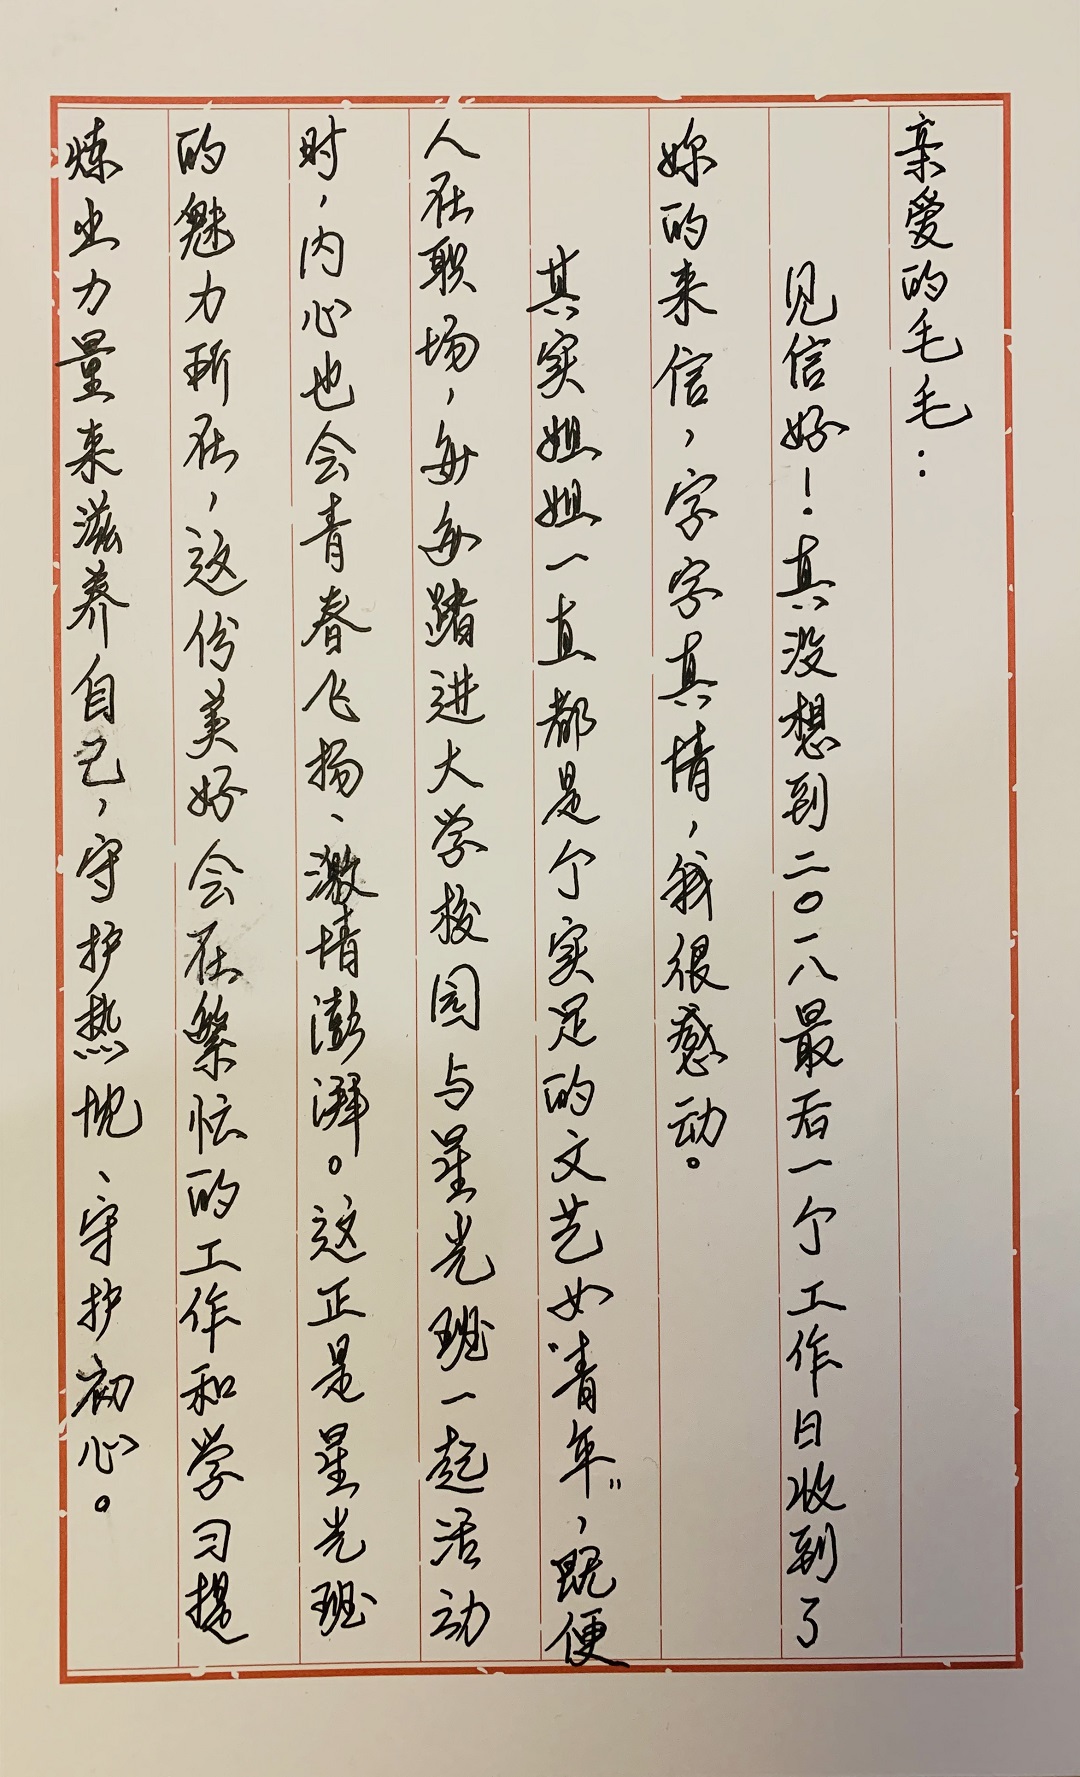 亲爱的毛毛：
见信好！真没想到二〇一八最后一个工作日收到了
妳的来信，字字真情，我很感动。
其实姐姐一直都是个实足的文艺女“青年”，既便
人在职场，每每踏进大学校园与星光班一起活动
时，内心也会青春飞扬、激情澎湃。这正是星光班
的魅力所在，这份美好会在繁忙的工作和学习提
炼出力量来滋养自己，守护热忱、守护初心。